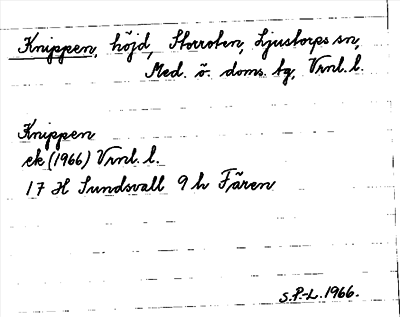 Knippen, höjd, Storroten, Ljustorps sn,
Med. ö. doms. tg, Vrnl. l.
Knippen
ek (1966) Vrnl. l.
17 H Sundsvall 9 h Fären
S.P.-L. 1966.